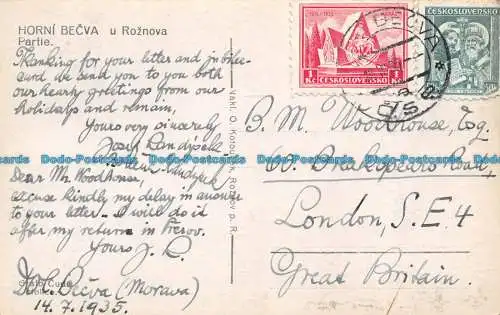 HORNÍ BEČVA u Rožnova
Partie.
Thanking for your letter and jubilee-
card we send you to you both
our hearty greetings from our
holidays and remain,
Yours very sincerely
Josef
Dear Mr. Woodhouse,
excuse kindly my delay in answer
to your letter - I will do it
after my return in Přerov.
Yours J.
Bečva (Morava)
14.7.1935.
Nakl. O.
Rožnov p. R.
1 Kč ČESKOSLOVENSKO
ČESKOSLOVENSKO
BEČVA
B. M. Woodhouse, Esq.
60. Shakespeare Road,
London, S.E 4
Great Britain.
Dodo-Postcards Dodo-Postcards Dodo-Postcards Dodo-Postcards
Dodo-Postcards Dodo-Postcards Dodo-Postcards Dodo-Postcards